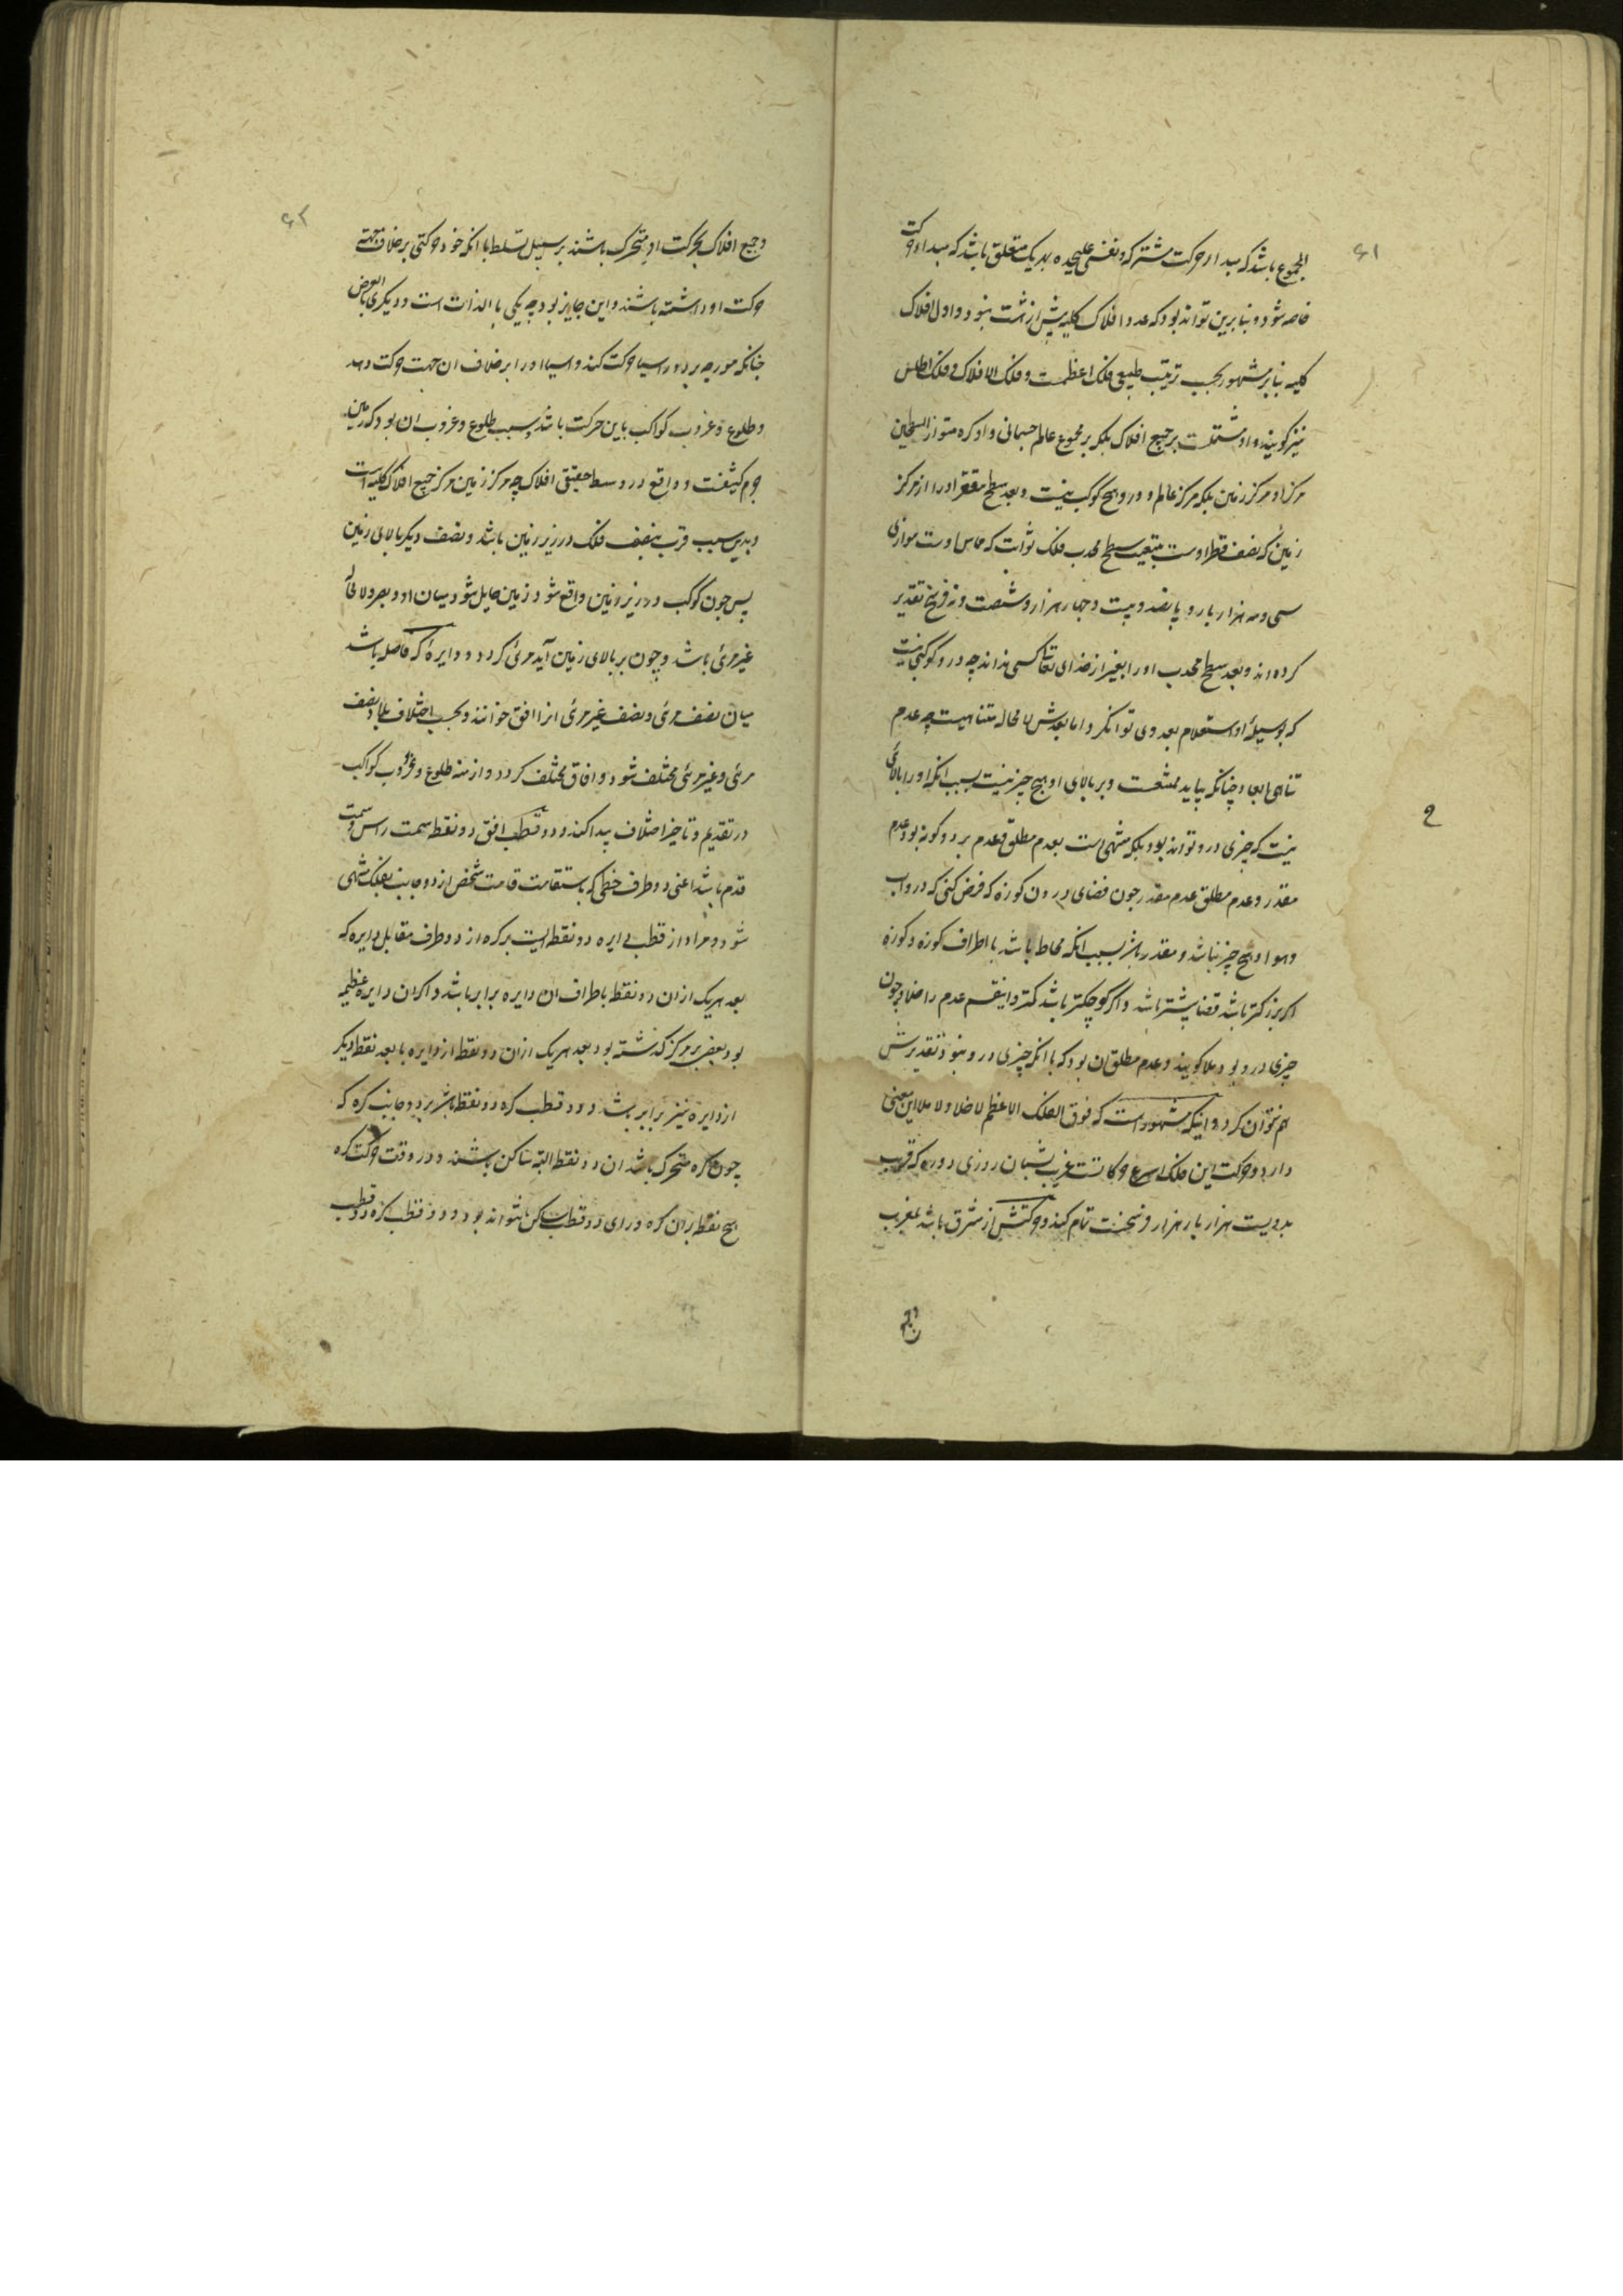 ۶۱
المجموع باشد که مبداء حرکت مشترکه و نفسی علیحده بهر یک متعلق باشد که مبداء حرکت
خاصه شود و بنابرین تواند بود که عدد افلاک کلیه بیش از هشت نبود و اول افلاک
کلیه بنابر مشهور بحسب ترتیب طبیعی فلک اعظمست و فلک الافلاک و فلک اطلس
نیز گویند و او مشتملست بر جمیع افلاک بلکه بر مجموع عالم جسمانی و او کره متوازی السطحین
مرکز او مرکز زمین بلکه مرکز عالم و درو هیچ کوکب نیست و بعد سطح مقعر او را از مرکز
زمین که نصف قطر اوست بتبعیت سطح محدب فلک ثوابت که مماس اوست موازی
سی و سه هزار بار و پانصد و بیست و چهار هزار و شصت و نه فرسخ تقدیر
کرده‌اند و بعد سطح محدب او را بغیر از خدای تعالی کسی نداند چه درو کوکبی نیست
که بوسیلهٔ او استعلام بعد وی توان کرد و اما بعدش لا محاله متناهیست چه عدم
تناهی ابعاد چنانکه بیاید ممتنعست و بر بالای او هیچ چیز نیست بسبب انکه او را بالائی
نیست که چیزی درو تواند بود بلکه منتهی است بعدم مطلق و عدم بر دو کونه بود عدم
مقدر و عدم مطلق عدم مقدر چون فضای درون کوزه که فرض کنی که درو اب
و هوا و هیچ چیز نباشد و مقدر باشد بسبب انکه محاط باشد با اطراف کوزه و کوزه
اکر بزرکتر باشد فضا بیشتر باشد و اکر کوچکتر باشد کمتر و اینقسم عدم را خلا و چون
چیزی درو بود ملا کویند و عدم مطلق ان بود که با انکه چیزی درو نبود تقدیرش
هم نتوان کرد و اینکه مشهور است که فوق الفلک الاعظم لا خلا و لا ملا این معنی
دارد و حرکت این فلک اسرع حرکاتست بشبان روزی دوره که قریب
بدویست هزار بار هزار فرسخست تمام کند و حرکتش از مشرق باشد بمغرب
و جمیع
۶۲
و جمیع افلاک بحرکت او متحرک باشند بر سبیل تسلط با انکه خود حرکتی بر خلاف جهت
حرکت او داشته باشند و این جایز بود چه یکی بالذات است و دیگری بالعرض
چنانکه مورچه بر دور اسیا حرکت کند و اسیا او را بر خلاف ان جهت حرکت دهد
و طلوع و غروب کواکب باین حرکت باشد و سبب طلوع و غروب ان بود که زمین
جرم کثیفست و واقع در وسط حقیقی افلاک چه مرکز زمین مرکز جمیع افلاک کلیه است
و بدین سبب قرب بنصف فلک در زیر زمین باشد و نصف دیگر بالای زمین
پس چون کوکب در زیر زمین واقع شود زمین حایل شود میان او و بصر و لا محاله
غیر مرئی باشد و چون بر بالای زمین آید مرئی کردد و دایرهٔ که فاصله باشد
میان نصف مرئی و نصف غیر مرئی انرا افق خوانند و بحسب اختلاف بلاد نصف
مرئی و غیر مرئی مختلف شود و افاق مختلف کردد و ازمنه طلوع و غروب کواکب
در تقدیم و تاخیر اختلاف پیدا کند و دو قطب افق دو نقطه سمت راس و سمت
قدم باشد اعنی دو طرف خطی که باستقامت قامت شخص از دو جانب بفلک منتهی
شود و مراد از قطب دایره دو نقطه ایست بر کره از دو طرف مقابل دایره که
بعد هر یک از ان دو نقطه باطراف ان دایره برابر باشد و اکر ان دایره عظیمه
بود یعنی بر مرکز کذشته بود بعد هر یک از ان دو نقطه از دایره با بعد نقطه دیگر
از دایره نیز برابر باشد و دو قطب کره دو نقطه باشد بر دو جانب کره که
چون کره متحرک باشد ان دو نقطه البته ساکن باشند و در وقت حرکت کره
هیچ نقطه بران کره ورای دو قطب ساکن نتواند بود و دو قطب کره دو قطب